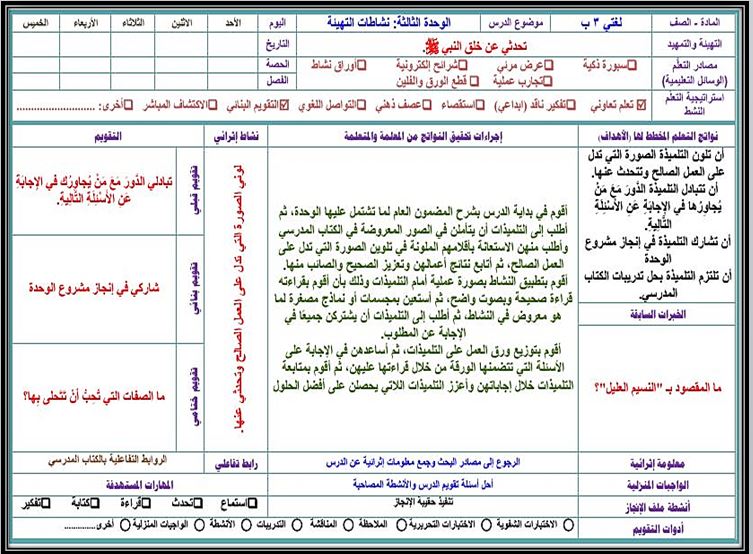 المادة - الصف
لغتي ٣ ب
موضوع الدرس
الوحدة الثالثة: نشاطات التهيئة
اليوم
الأحد
الاثنين
الثلاثاء
الأربعاء
الخميس
التهيئة والتمهيد
تحدثي عن خلق النبي ﷺ.
التاريخ
مصادر التعلم
(الوسائل التعليمية)
❑سبورة ذكية ❑عرض مرئي ❑شرائح إلكترونية ❑أوراق نشاط
❑تجارب عملية ❑ قطع الورق والفلين
الحصة
الفصل
استراتيجية التعلم
النشط
☑ تعلم تعاوني ❑تفكير ناقد (ابداعي) ❑استقصاء ❑عصف ذهني ❑التواصل اللغوي ☑التقويم البنائي ❑الاكتشاف المباشر ❑أخرى: ........................
نواتج التعلم المخطط لها (الأهداف)
إجراءات تحقيق النواتج من المعلمة والمتعلمة
نشاط إثرائي
التقويم
أن تلون التلميذة الصورة التي تدل
على العمل الصالح وتتحدث عنها.
أن تتبادل التلميذة الدَّورَ مَعَ مَنْ
يُجاوِرُها في الإجابَةِ عَنِ الأَسْئِلَةِ
التَّاليَةِ.
أن تشارك التلميذة في إنجاز مشروع
الوحدة
أن تلتزم التلميذة بحل تدريبات الكتاب
المدرسي.
الخبرات السابقة
ما المقصود بـ "النسيم العليل"؟
أقوم في بداية الدرس بشرح المضمون العام لما تشتمل عليها الوحدة، ثم
أطلب إلى التلميذات أن يتأملن في الصور المعروضة في الكتاب المدرسي
وأطلب منهن الاستعانة بأقلامهم الملونة في تلوين الصورة التي تدل على
العمل الصالح، ثم أتابع نتائج أعمالهن وتعزيز الصحيح والصائب منها.
أقوم بتطبيق النشاط بصورة عملية أمام التلميذات وذلك بأن أقوم بقراءته
قراءة صحيحة وبصوت واضح، ثم أستعين بمجسمات أو نماذج مصغرة لما
هو معروض في النشاط، ثم أطلب إلى التلميذات أن يشتركن جميعًا في
الإجابة عن المطلوب.
أقوم بتوزيع ورق العمل على التلميذات، ثم أساعدهن في الإجابة على
الأسئلة التي تتضمنها الورقة من خلال قراءتها عليهن، ثم أقوم بمتابعة
التلميذات خلال إجاباتهن وأعزز التلميذات اللاتي يحصلن على أفضل الحلول
لوني الصورة التي تدل على العمل الصالح وتحدثي عنها.
تقويم قبلي
تبادلي الدَّورَ مَعَ مَنْ يُجاوِرُك في الإجابَةِ
عَنِ الأَسْئِلَةِ التَّاليَةِ.
تقويم بنائي
شاركي في إنجاز مشروع الوحدة
تقويم ختامي
ما الصفات التي تُحِبُّ أنْ تَتَحلى بِها؟
معلومة إثرائية
الرجوع إلى مصادر البحث وجمع معلومات إثرائية عن الدرس
رابط تفاعلي
الروابط التفاعلية بالكتاب المدرسي
الواجبات المنزلية
أحل أسئلة تقويم الدرس والأنشطة المصاحبة
المهارات المستهدفة
أنشطة ملف الإنجاز
تنفيذ حقيبة الإنجاز
❑استماع ❑تحدث ❑قراءة ❑كتابة ❑تفكير
أدوات التقويم
○ الاختبارات الشفوية ○ الاختبارات التحريرية ○ الملاحظة ○ المناقشة ○ التدريبات ○ الأنشطة ○ الواجبات المنزلية ○ أخرى...............